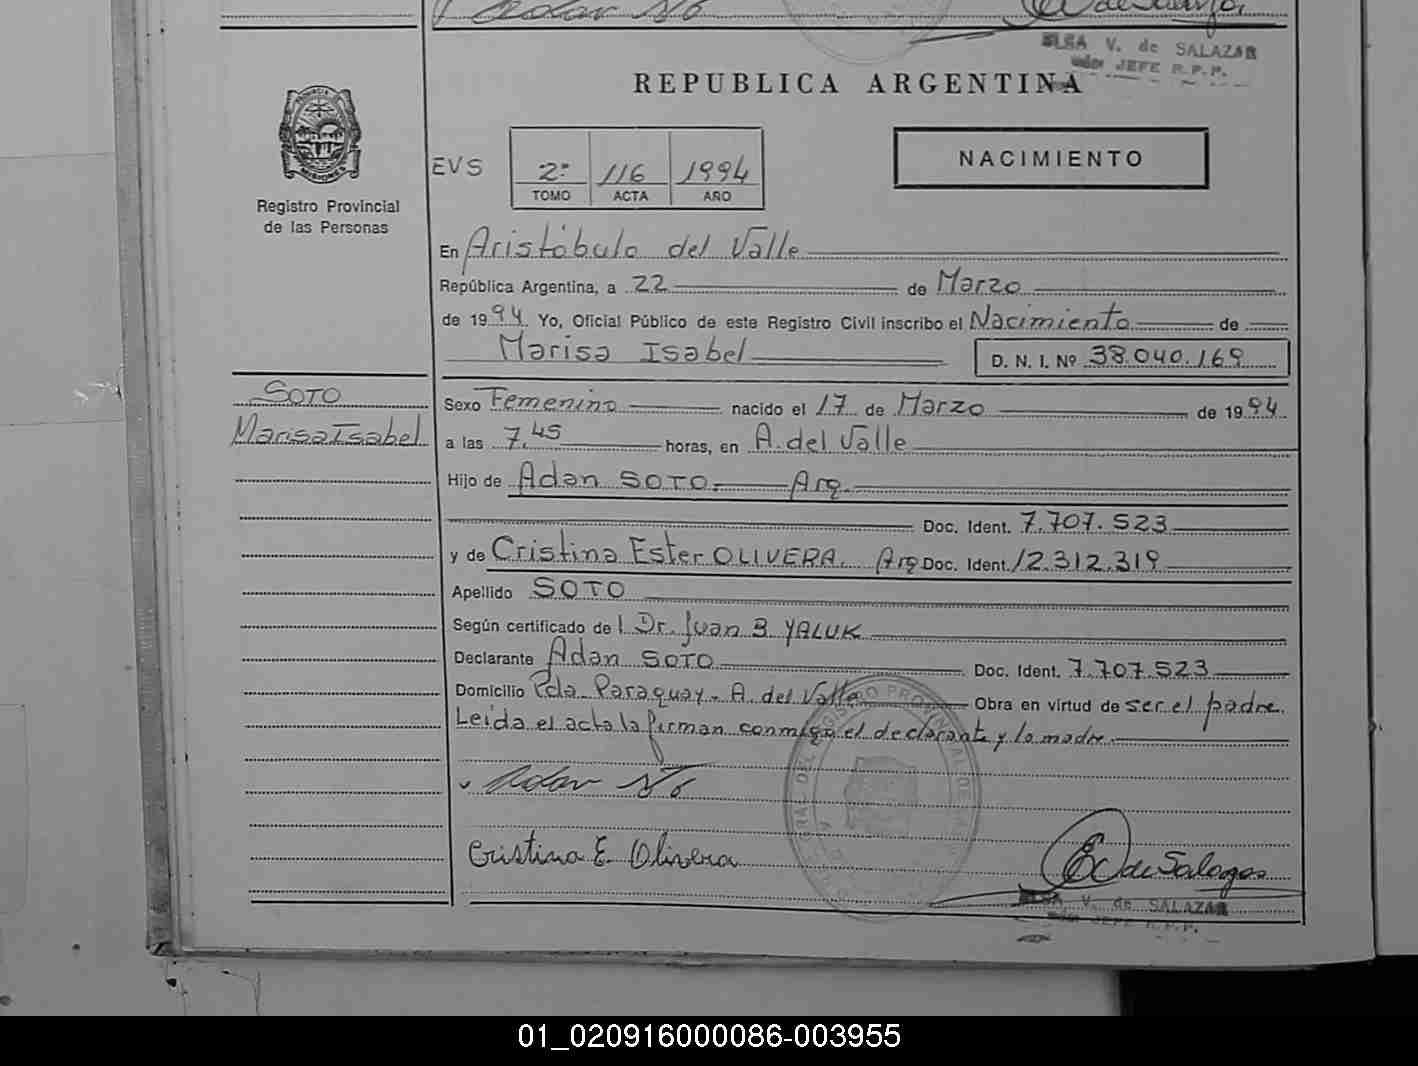 ELSA V. de SALAZAR
JEFE R.P.P.
REPUBLICA ARGENTINA
PROVINCIA DE
MISIONES
Registro Provincial
de las Personas
EVS
2º 116 1994
TOMO ACTA AÑO
NACIMIENTO
En Aristóbulo del Valle
República Argentina, a 22 de Marzo
de 1994 Yo, Oficial Público de este Registro Civil inscribo el Nacimiento de
Marisa Isabel D. N. I. Nº 38.040.169
SOTO
Marisa Isabel
Sexo Femenino nacido el 17 de Marzo de 1994
a las 7,45 horas, en A. del Valle
Hijo de Adan SOTO. Arg.
Doc. Ident. 7.707.523
y de Cristina Ester OLIVERA. Arg Doc. Ident. 12.312.319
Apellido SOTO
Según certificado de l Dr. Juan B. YALUK
Declarante Adan SOTO Doc. Ident. 7.707.523
Domicilio Pcla. Paraguay - A. del Valle Obra en virtud de ser el padre.
Leida el acta la firman conmigo el declarante y la madre.
Adan Sto
Cristina E. Olivera
EV de Salazar
ELSA V. de SALAZAR
JEFE R.P.P.
01_020916000086-003955